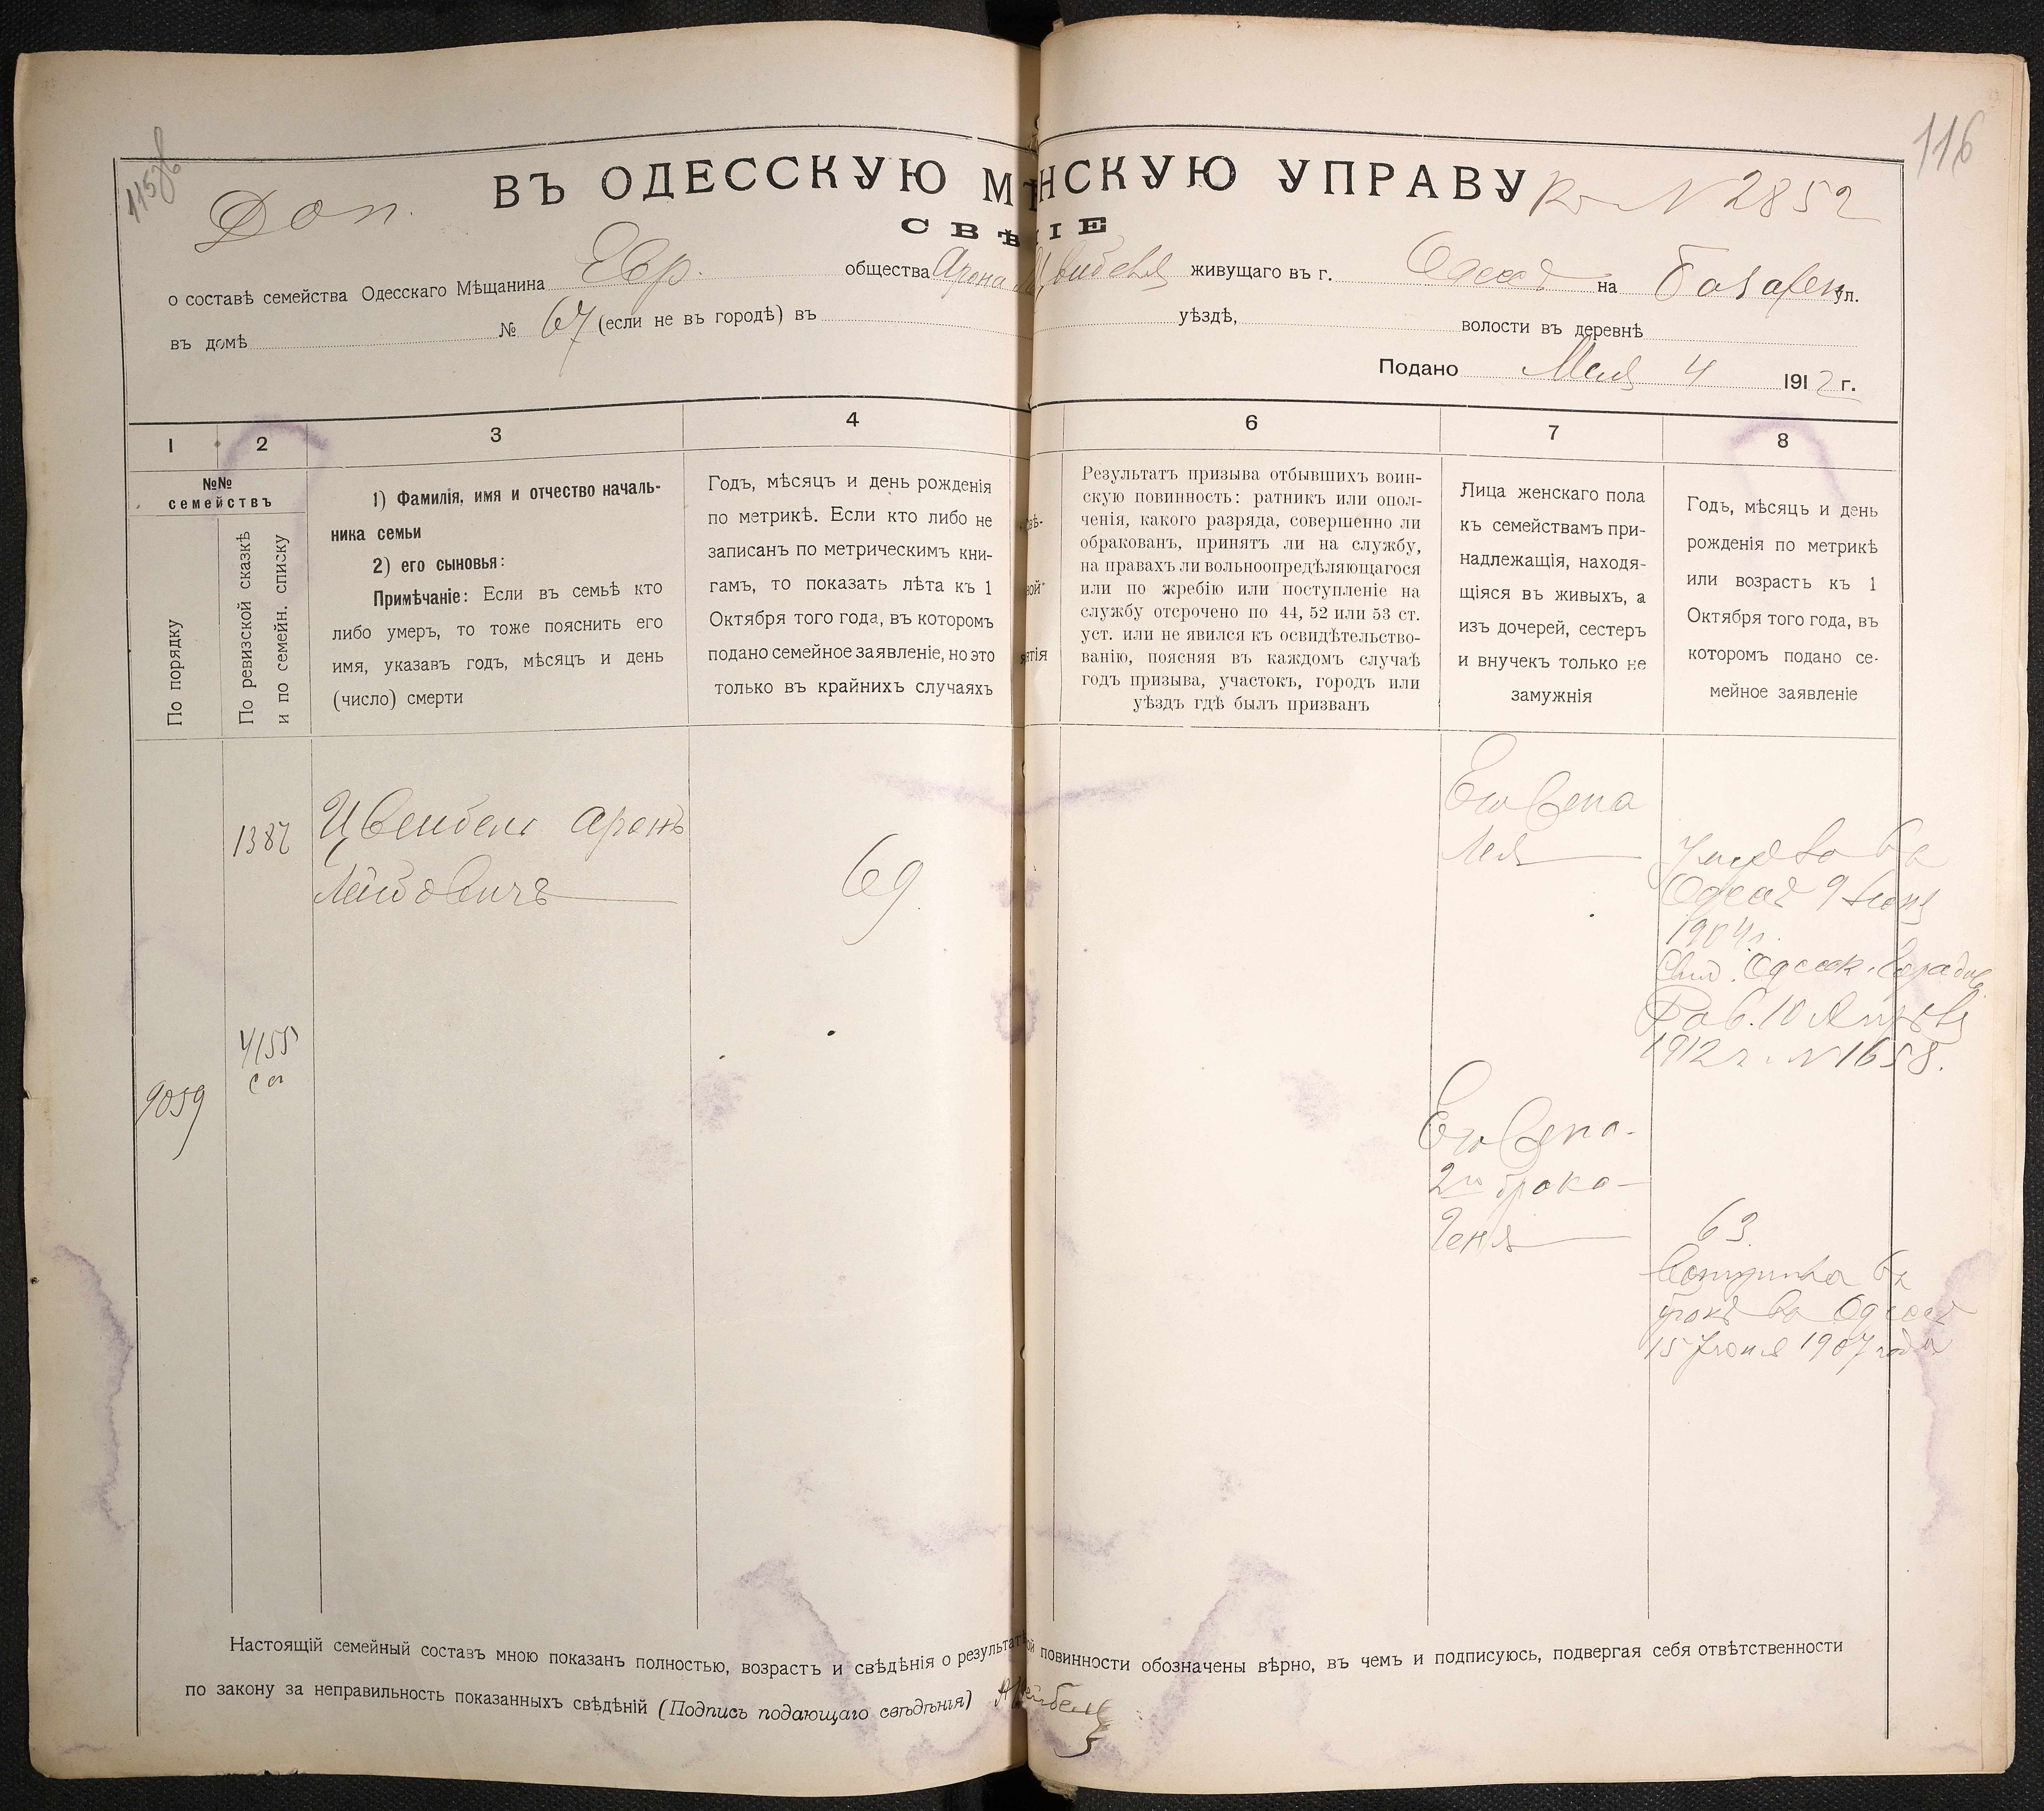 115об
116
Доп.
ВЪ ОДЕССКУЮ М НСКУЮ УПРАВУ
К № 2852
СВѢ IE
о составѣ семейства Одесскаго Мѣщанина Евр. общества Арона живущаго въ г. Одессѣ на Базарн ул.
въ домѣ № 67 (если не въ городѣ) въ уѣздѣ, волости въ деревнѣ
Подано Мая 4 1912 г.
1 2 3 4 6 7 8
№№
семействъ
По порядку
По ревизской сказкѣ
и по семейн. списку
1) Фамилія, имя и отчество началь-
ника семьи
2) его сыновья:
Примѣчаніе: Если въ семьѣ кто
либо умеръ, то тоже пояснить его
имя, указавъ годъ, мѣсяцъ и день
(число) смерти
Годъ, мѣсяцъ и день рожденія
по метрикѣ. Если кто либо не
записанъ по метрическимъ кни-
гамъ, то показать лѣта къ 1
Октября того года, въ которомъ
подано семейное заявленіе, но это
только въ крайнихъ случаяхъ
Результатъ призыва отбывшихъ воин-
скую повинность: ратникъ или опол-
ченія, какого разряда, совершенно ли
обракованъ, принятъ ли на службу,
на правахъ ли вольноопредѣляющагося
или по жребію или поступленіе на
службу отсрочено по 44, 52 или 53 ст.
уст. или не явился къ освидѣтельство-
ванію, поясняя въ каждомъ случаѣ
годъ призыва, участокъ, городъ или
уѣздъ гдѣ былъ призванъ
Лица женскаго пола
къ семействамъ при-
надлежащія, находя-
щіяся въ живыхъ, а
изъ дочерей, сестеръ
и внучекъ только не
замужнія
Годъ, мѣсяцъ и день
рожденія по метрикѣ
или возрастъ къ 1
Октября того года, въ
которомъ подано се-
мейное заявленіе
1387
Цвейбель Аронъ
Лейбовичъ
69
Его жена
Лея
Умерла въ
Одессѣ 9 Іюня
1904 г.
Свид. Одесск. Городск.
Рав. 10 Апрѣля
1912 г. № 1658.
9059
4155
Его жена
2го брака
Геня
63
Вступила въ
бракъ въ Одессѣ
15 Іюня 1907 года
Настоящій семейный составъ мною показанъ полностью, возрастъ и свѣдѣнія о результат ой повинности обозначены вѣрно, въ чемъ и подписуюсь, подвергая себя отвѣтственности
по закону за неправильность показанныхъ свѣдѣній (Подпись подающаго свѣдѣнія)